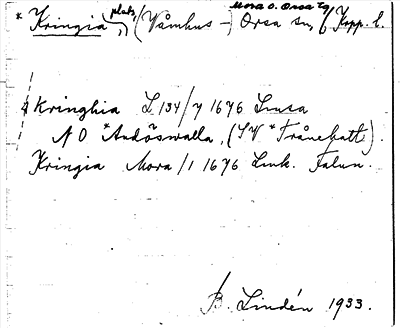 * Kringia, plats, (Våmhus - Orsa sn, Mora o. Orsa tg, Kopp. l.
Kringhia L 134/7 1676 Linsa
N O *Andöswalla, (S V *Trånebatt).
Kringia Mora /1 1676 Link. Falun.
B. Lindén 1933.